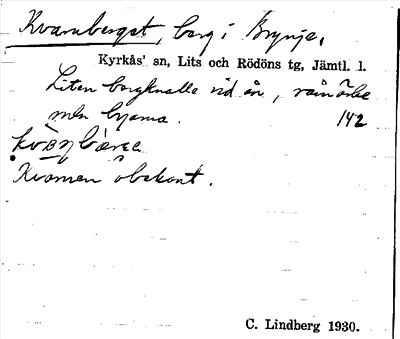 Kvarnberget, berg i Brynje,
Kyrkås' sn, Lits och Rödöns tg, Jämtl. l.
Liten bergknalle vid ån,
mln byarna. 142
Kvarnen obekant.
C. Lindberg 1930.